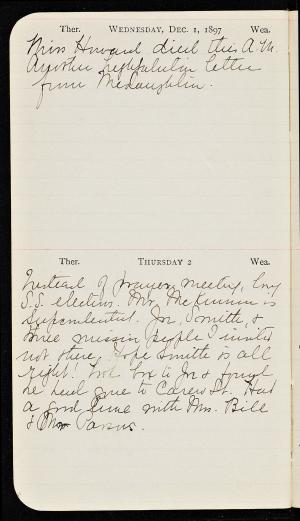 Ther. WEDNESDAY, DEC. 1, 1897 Wea.
Miss Howard died this A.M.
Another letter
from McLaughlin.
Ther. THURSDAY 2 Wea.
Instead of prayer meeting,
S.S. elections. Mr. McKinnon is
Superintendent. Jon, Smith, &
three mission people I invited
not there. Hope Smith is all
right! Took box to Jon & found
he had gone to Carew St. Had
a good time with Mrs. Bill
& Parsons.